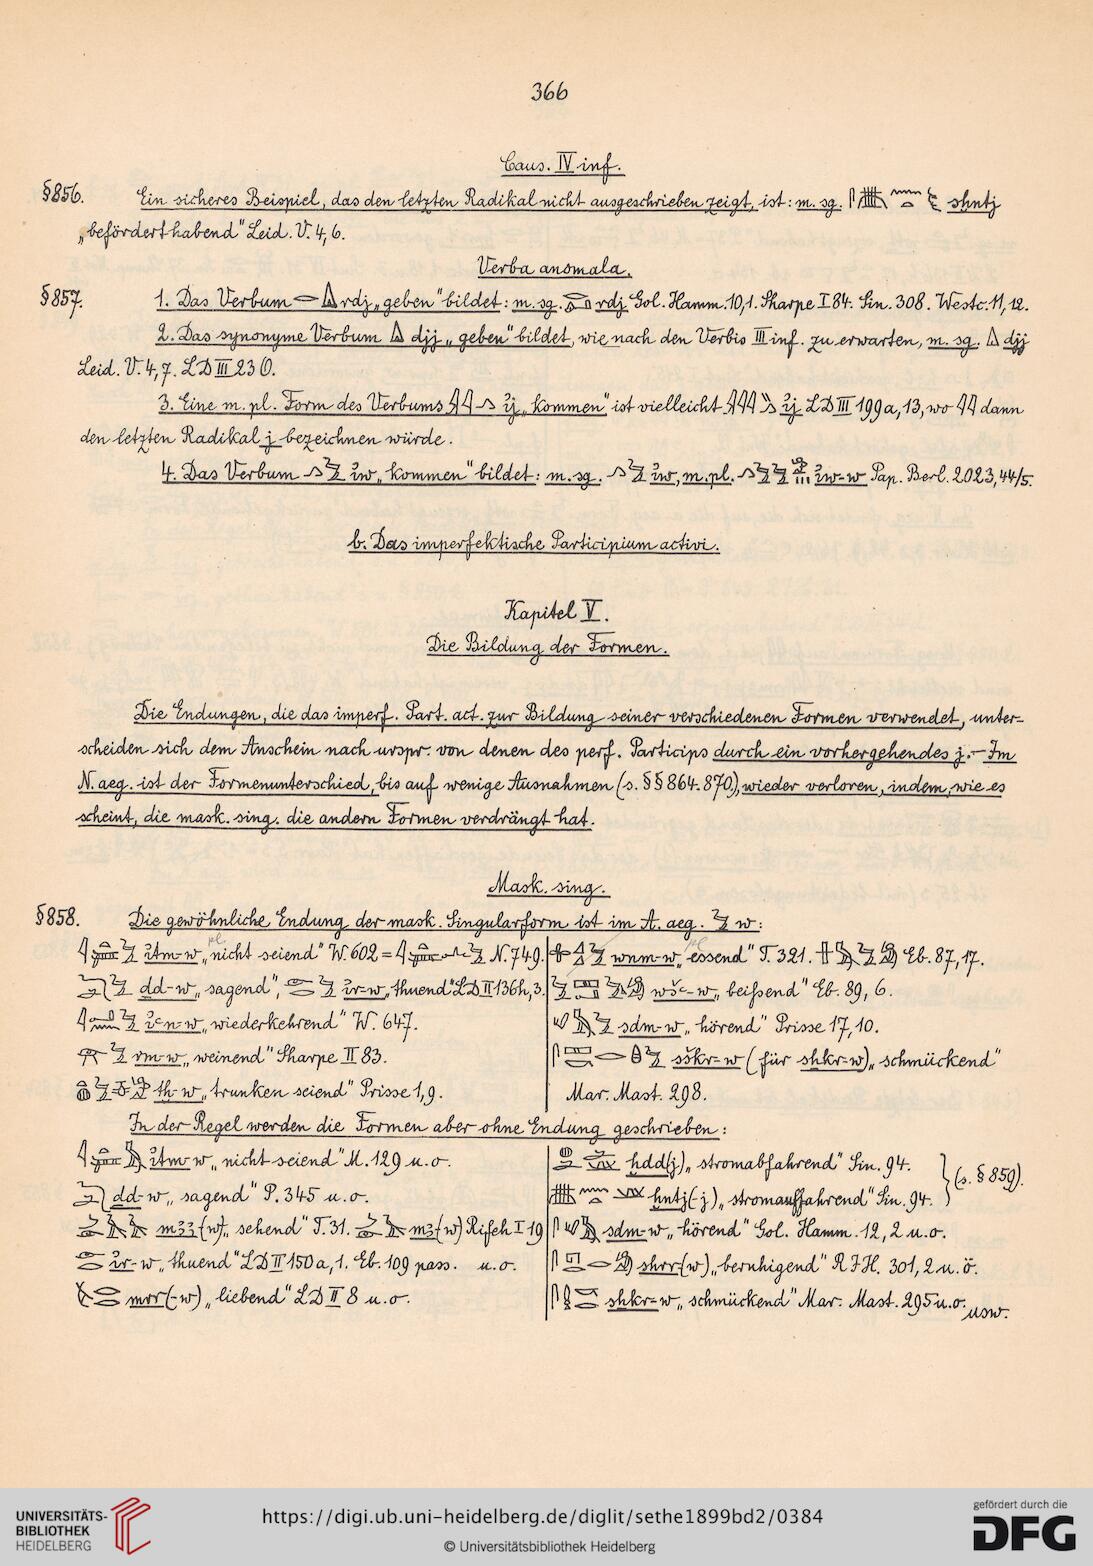 366
Caus. IV inf.
§856. Ein sicheres Beispiel, das den letzten Radikal nicht ausgeschrieben zeigt, ist: m. sg. sḫntj
„befördert habend" Leid. V. 4, 6.
Verba anomala.
§857. 1. Das Verbum rdj „geben" bildet: m. sg. rdj Gol. Hamm. 10,1. Sharpe I 84. Sin. 308. Westc. 11, 12.
2. Das synonyme Verbum djj „geben" bildet, wie nach den Verbis III inf. zu erwarten, m. sg. djj
Leid. V. 4, 7. LD III 230.
3. Eine m. pl. Form des Verbums ı͗j „kommen" ist vielleicht ı͗j LD III 199a, 13, wo 𓇋𓇋 dann
den letzten Radikal j bezeichnen würde.
4. Das Verbum ı͗w „kommen" bildet: m. sg. ı͗w, m. pl. ı͗w-w Pap. Berl. 2023, 44/5.
b. Das imperfektische Participium activi.
Kapitel V.
Die Bildung der Formen.
Die Endungen, die das imperf. Part. act. zur Bildung seiner verschiedenen Formen verwendet, unter-
scheiden sich dem Anschein nach urspr. von denen des perf. Particips durch ein vorhergehendes j. – Im
N. aeg. ist der Formenunterschied, bis auf wenige Ausnahmen (s. §§ 864. 870), wieder verloren, indem, wie es
scheint, die mask. sing. die andern Formen verdrängt hat.
Mask. sing.
§858. Die gewöhnliche Endung der mask. Singularform ist im A. aeg. 𓅱 w:
ı͗tm-w „nicht seiend" W. 602 = N. 749.
ḏd-w „sagend", ı͗r-w „thuend" LD II 136h, 3.
ı͗ꜥn-w „wiederkehrend" W. 647.
rm-w „weinend" Sharpe II 83.
tḫ-w „trunken seiend" Prisse 1, 9.
wnm-w „essend" T. 321. Eb. 87, 17.
wšꜥ-w „beißend" Eb. 89, 6.
sḏm-w „hörend" Prisse 17, 10.
sškr-w (für sḫkr-w) „schmückend"
Mar. Mast. 298.
In der Regel werden die Formen aber ohne Endung geschrieben:
ı͗tm-w „nicht seiend" M. 129 u. o.
ḏd-w „sagend" P. 345 u. o.
mꜣꜣ(-w) „sehend" T. 31. mꜣ(-w) Rifeh I 19
ı͗r-w „thuend" LD II 150a, 1. Eb. 109 pass. u. o.
mrr(-w) „liebend" LD II 8 u. o.
ḫdd(j) „stromabfahrend" Sin. 94.
ḫntj(-j) „stromauffahrend" Sin. 94. } (s. § 859).
sḏm-w „hörend" Gol. Hamm. 12, 2 u. o.
shrr(w) „beruhigend" RJH. 301, 2 u. ö.
sḫkr-w „schmückend" Mar. Mast. 295 u. o.
usw.
UNIVERSITÄTS-
BIBLIOTHEK
HEIDELBERG
https://digi.ub.uni-heidelberg.de/diglit/sethe1899bd2/0384
© Universitätsbibliothek Heidelberg
gefördert durch die
DFG